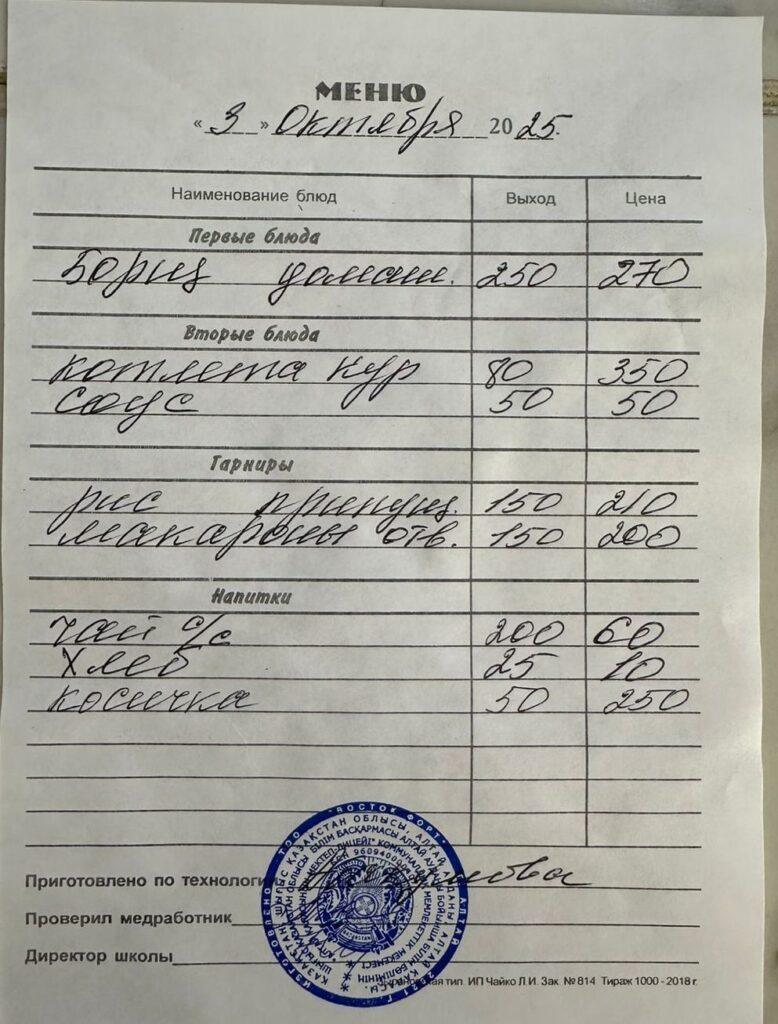 МЕНЮ
« 3 » Октября 2025.
Наименование блюд Выход Цена
Первые блюда
Борщ домаш. 250 270
Вторые блюда
котлета кур 80 350
соус 50 50
Гарниры
рис припущ. 150 210
макароны отв. 150 200
Напитки
чай с/с 200 60
хлеб 25 10
косичка 50 250
Приготовлено по технологи
Проверил медработник
Директор школы
тип. ИП Чайко Л.И. Зак. № 814 Тираж 1000 - 2018 г.
ООО "ВОСТОК ФОРТ"
ИЗГОТОВЛЕНО
ҚАЗАҚСТАН ОБЛЫСЫ, АЛТАЙ
БІЛІМ БАСҚАРМАСЫ АЛТАЙ
МЕКТЕП-ЛИЦЕЙІ" КОММУНАЛДЫҚ
МЕМЛЕКЕТТІК МЕКЕМЕСІ